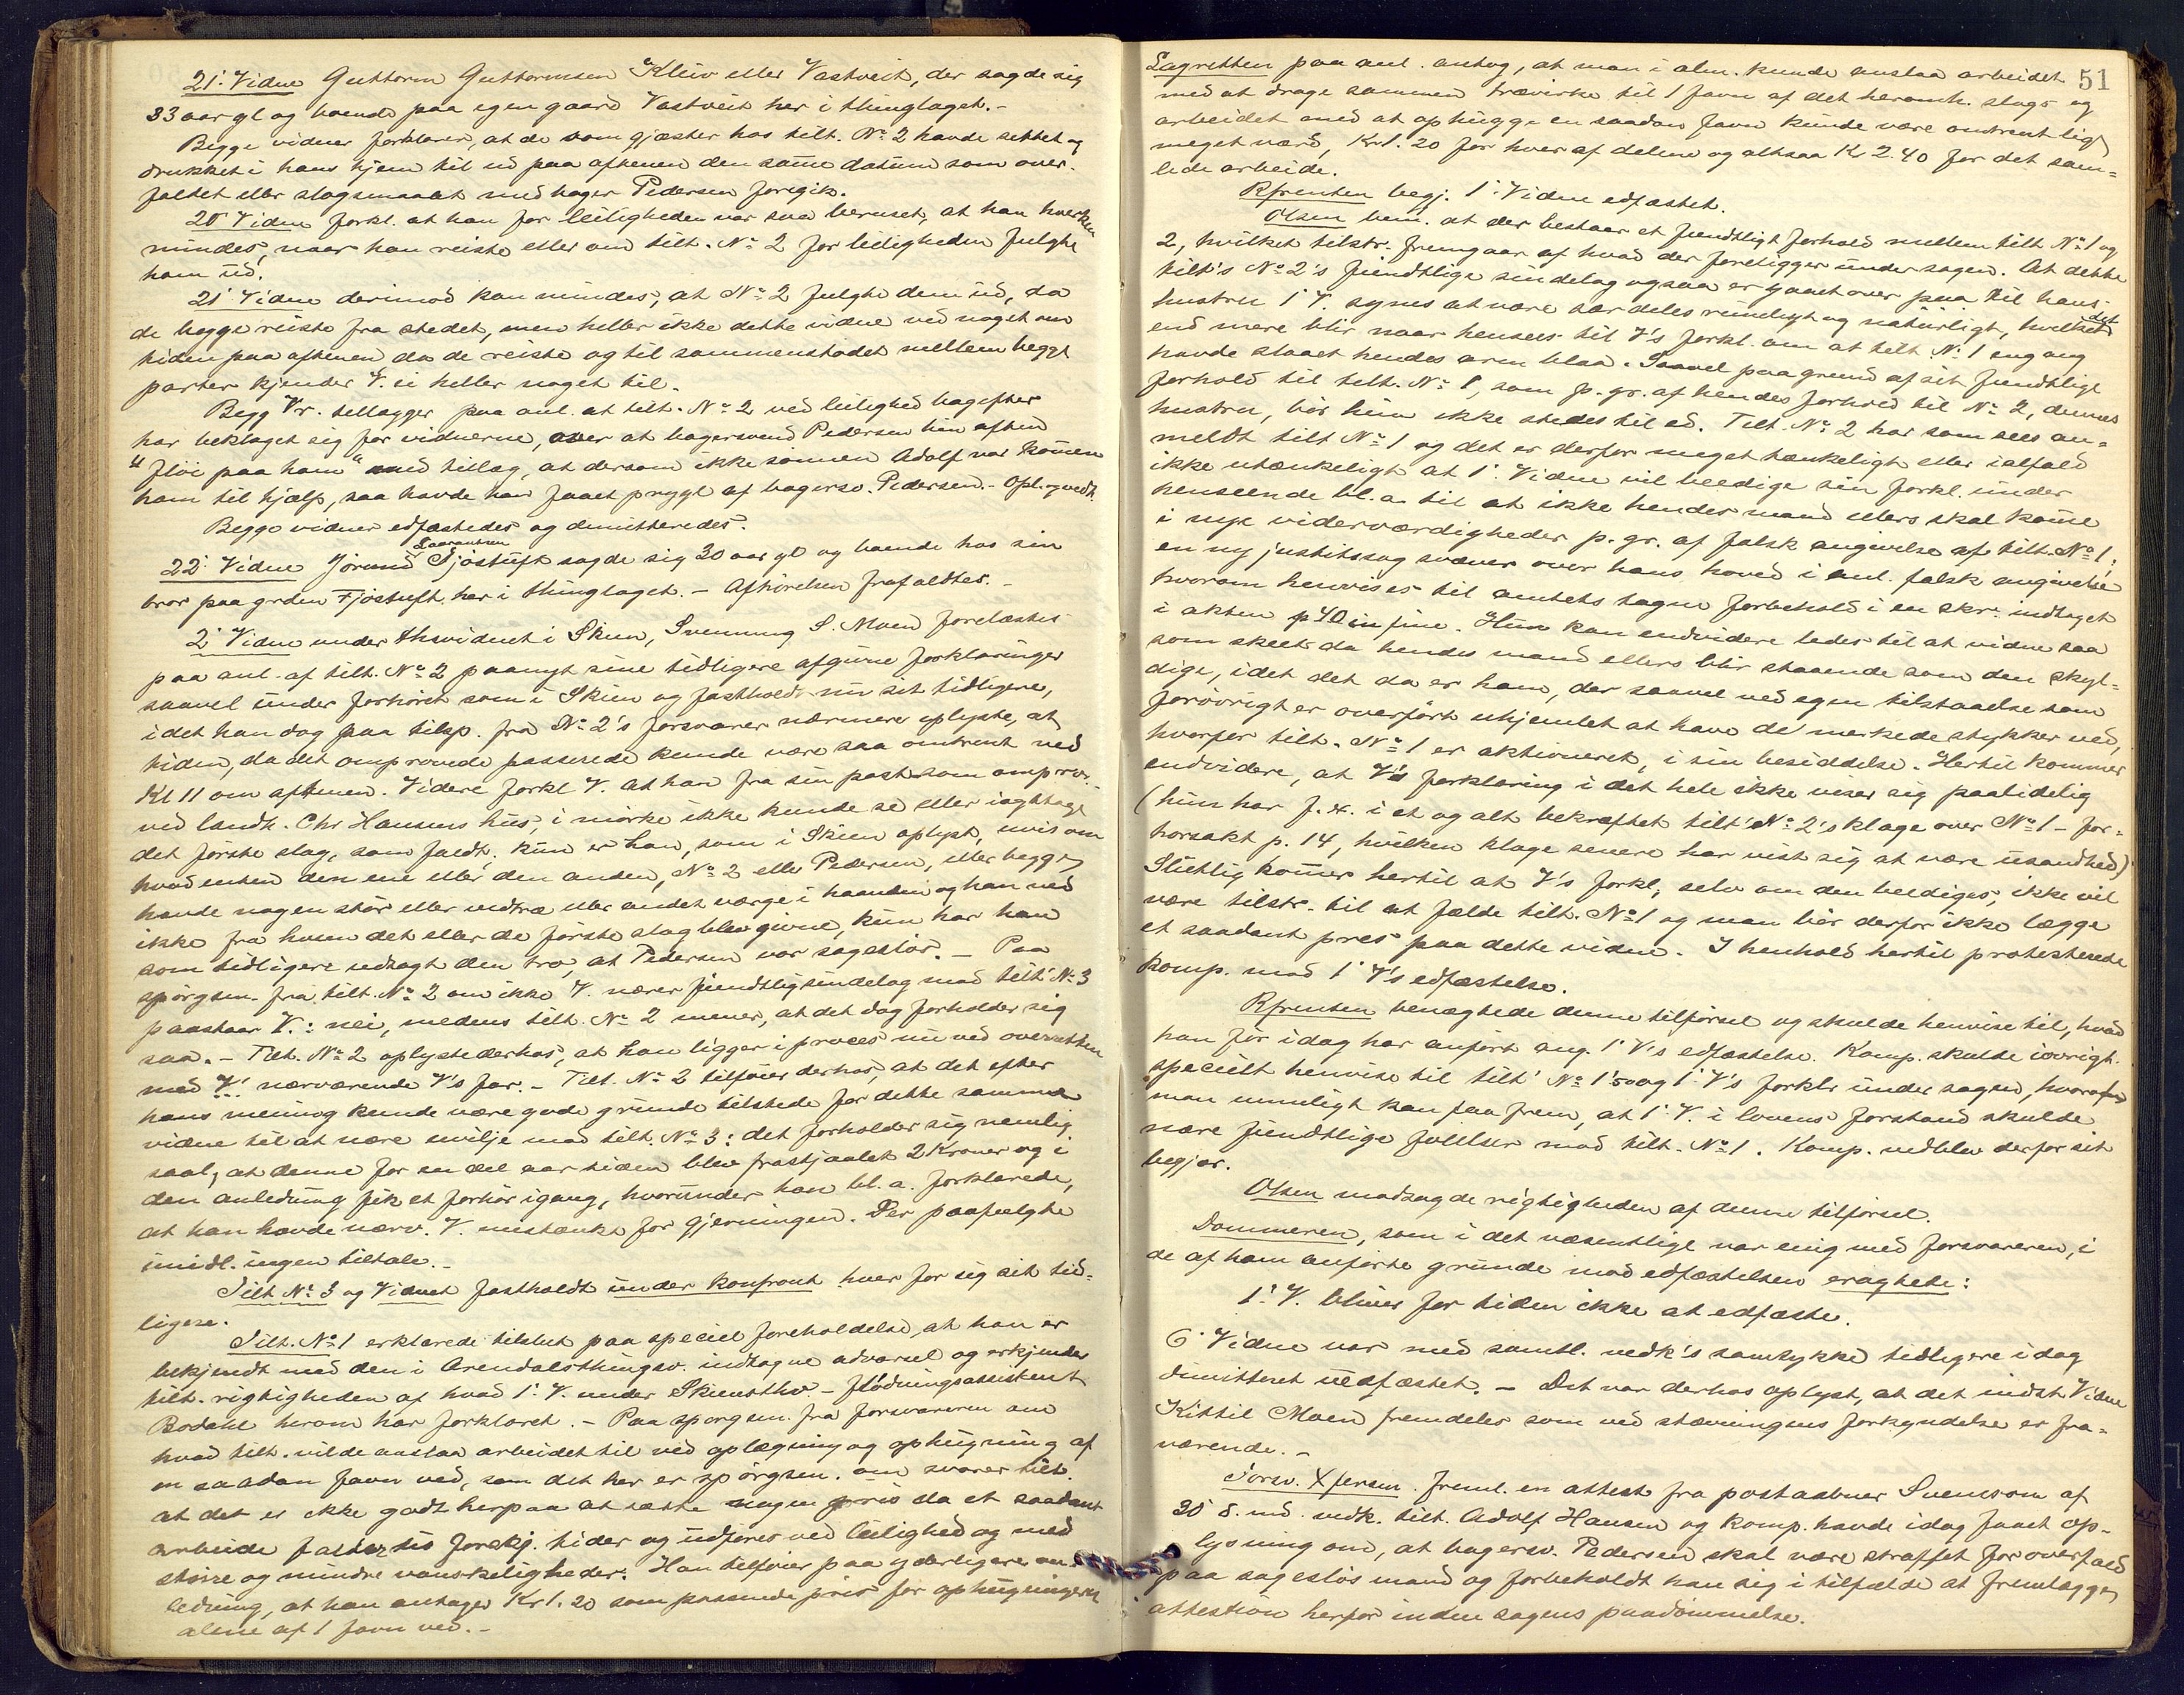 21' Vidne Guttorm Guttormsen Kleiv eller Vastveit, der sagde sig
33 aar gl og boende paa egen gaard Vastveit her i thinglaget.-
Begge vidner forklarer, at de som gjæster hos tilt. No 2 havde siddet og
drukket i hans hjem til ud paa aftenen den same datum som over-
faldet eller slagsmaalet med bager Pedersen foregik.
20' Vidne forkl. at han for leiligheden var saa beruset, at han hverken
mindes, naar han reiste eller om tilt. No 2 for leiligheden fulgte
ham ud.
21' Vidne derimod kan mindes, at No 2 fulgte dem ud, da
de begge reiste fra stedet, men heller ikke dette vidne ved noget om
tiden paa aftenen da de reiste og til sammenstødet mellem begge
parter kjender V. ei heller noget til.
Begg Vr. tillægger paa anl. at tilt. No 2 ved leilighed bagefter
har beklaget sig for vidnerne, over at bagersvend Pedersen hin aften
"fløi paa ham" med tillæg, at dersom ikke sønnen Adolf var kommen
ham til hjælp, saa havde han faaet prygl af bagersv. Pedersen.- Opl. og vedt.
Begge vidner edfæstedes og demitteredes.
22' Vidne Jørund Saavantsen Fjøstuft sagde sig 30 aar gl og boende hos sin
bror paa grden Fjøstuft her i thinglaget. - Afhørelsen frafaldtes.-
2' Vidne under thsvidnet i Skien, Svennung S. Moen forelæstes
paa anl. af tilt. No 2 paanyt sine tidligere afgivne forklaringer
saavel under forhøret som i Skien og fastholdt nu sit tidligere,
idet han dog paa tilsp. fra No 2's forsvarer nærmere oplyste, at
tiden, da det omprovede passerede kunde være saa omtrent ved
Kl 11 om aftenen. Videre forkl V. at han fra sin post som ompr.
ved landh. Chr Hansens hus, i mørke ikke kunde se eller iagttage
det første slag, som faldt. kun er han, som i Skien oplyst, uvis om
hvad enten den ene eller den anden, No 2 eller Pedersen, eller begge
havde nogen stør eller vedtræ eller andet værge i haanden og han ved
ikke fra hvem det eller de første slag blev givne, kun har han
som tidligere udsagt den tro, at Pedersen var sagesløs. - Paa
spørgsm. fra tilt. No 2 om ikke V. nærer fiendtlig sindelag mod tilt' No 3
paastaar V.: nei, medens tilt. No 2 mener, at det dog forholder sig
saa. - Tilt. No 2 oplyste derhos, at han ligger i proces nu ved overretten
med V. nærværende V's far. - Tilt. No 2 tilføier derhos, at det efter
hans mening kunde være gode grunde tilstede for dette samme
vidne til at nære uvilje mod tilt. No 3: det forholder sig nemlig
saal, at denne for en del aar siden blev frastjaalet 2 Kroner og i
den anledning fik et forhør igang, hvorunder han bl. a. forklarede,
at han havde nærv. V. mistænkt for gjerningen. Der paafulgte
imidl. ingen tiltale.-
Tilt No 3 og Vidnet fastholdt under konfront hver for sig sit tid-
ligere.
Tilt. No 1 erklærede tilslut paa speciel foreholdelse, at han er
bekjendt med den i Arendalsthingsv. indtagne advarsel og erkjender
tilt. rigtigheden af hvad 1' V. under Skiensthv. - flødningsassistent
Bodahl herom har forklaret. - Paa spørgsm. fra forsvareren om
hvad tilt. vilde anslaa arbeidet til ved oplægning og ophugning af
en saadan favn ved, som det her er spørgsm. om svarer tilt.
at det er ikke godt herpaa at sætte nogen pris da et saadant
arbeide faldes til forskj. tider og udføres ved leilighed og med
større og mindre vanskeligheder. Han tilføier paa yderligere an-
ledning, at han antager Kr 1.20 som passende pris for ophugningen
alene af 1 favn ved.-
51
Lagretten paa anl. antog, at man i alm. kunde anslaa arbeidet
med at drage sammen trævirke til 1 favn af det heromh. slags og
arbeidet med at ophugge en saadan favn kunde være omtrent lige
meget værd, Kr 1.20 for hver af delene og altsaa Kr 2.40 for det sam-
lede arbeide.
Rfrenten begj. 1' Vidne edfæstet.
Olsen bem. at der bestaar et fiendtligt forhold mellem tilt. No 1 og
2, hvilket tilstr. fremgaar af hvad der foreligger under sagen. At dette
tilt's No 2's fiendtlige sindelag ogsaa er gaaet over paa til hans
hustru 1' V. synes at være særdeles rimeligt og naturligt, hvilket det
end mere blir naar hensees til V's forkl. om at tilt No 1 engang
havde slaaet hendes arm blaa. Saavel paa grund af sit fiendtlige
forhold til tilt. No 1, som p. gr. af hendes forhold til No 2, dennes
hustru, bør hun ikke stedes til ed. Tilt. No 2 har som sees an-
meldt tilt No 1 og det er derfor meget tænkeligt eller ialfald
ikke utænkeligt at 1' Vidne vil beedige sin forkl. under
henseende bl. a. til at ikke hendes mand ellers skal kome
i nye viderværdigheder p. gr. af falsk angivelse af tilt. No 1;
en ny justitssag svæver over hans hoved i anl. falsk angivelse
hvorom henvises til amtets tagne forbehold i en skr. indtaget
i akten p 40 in fine. Hun kan endvidere ledes til at vidne saa
som skeet da hendes mand ellers blir staaende som den skyl-
dige, idet det da er ham, der saavel ved egen tilstaaelse som
forøvrigt er overført uhjemlet at have de merkede stykker ved,
hvorfor tilt. No 1 er aktioneret, i sin besiddelse. Hertil kommer
endvidere, at V's forklaring i det hele ikke viser sig paalidelig
(hun har f. x. i et og alt bekræftet tilt' No 2's klage over No 1 - for-
horsakt p. 14, hvilken klage senere har vist sig at være usandhed)
Sluttlig kommer hertil at V's forkl, selv om den beediges, ikke vil
være tilstr. til at fælde tilt. No 1 og man bør derfor ikke lægge
et saadant pres paa dette vidne. I henhold hertil protesterede
komp. mod 1' V's edfæstelse.
Rfrenten benægtede denne tilførsel og skulde henvise til, hvad
han før idag har anført ang. 1' V's edfæstelse. Komp. skulde iøvrigt
specielt henvise til tilt' No 1's og 1' V's forklr under sagen, hvoraf
man umuligt kan faa frem, at 1' V. i lovens forstand skulde
nære fiendtlige følelser mod tilt. No 1. Komp. vedblev derfor sit
begjær.
Olsen modsagde rigtigheden af denne tilførsel.
Dommeren, som i det væsentlige var enig med forsvareren, i
de af ham anførte grunde mod edfæstelsen eragtede:
1' V. bliver for tiden ikke at edfæste.
6' Vidne var med samtl. vedk's samtykke tidligere idag
dimitteret uedfæstet. - Det var derhos oplyst, at det indst. Vidne
Kittil Moen fremdeles som ved stævningens forkyndelse er fra-
værende.-
Forsv. Xfersen freml. en attest fra postaabner Svenson af
20' d. md. vedk. tilt. Adolf Hansen og komp. havde idag faaet op-
lysning om, at bagersv. Pedersen skal være straffet for overfald
paa sagesløs mand og forbeholdt han sig i tilfælde at fremlægge
attestion herfor inden sagens paadømmelse.